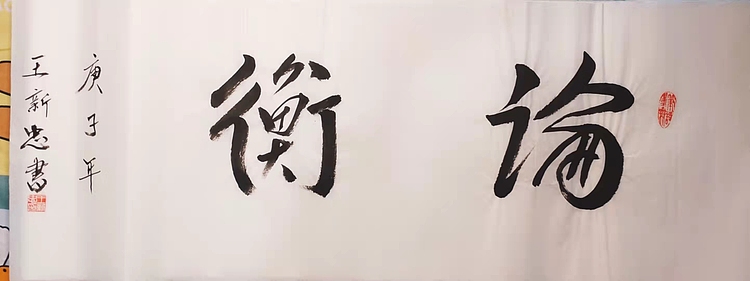 論衡
庚子年
王新忠書